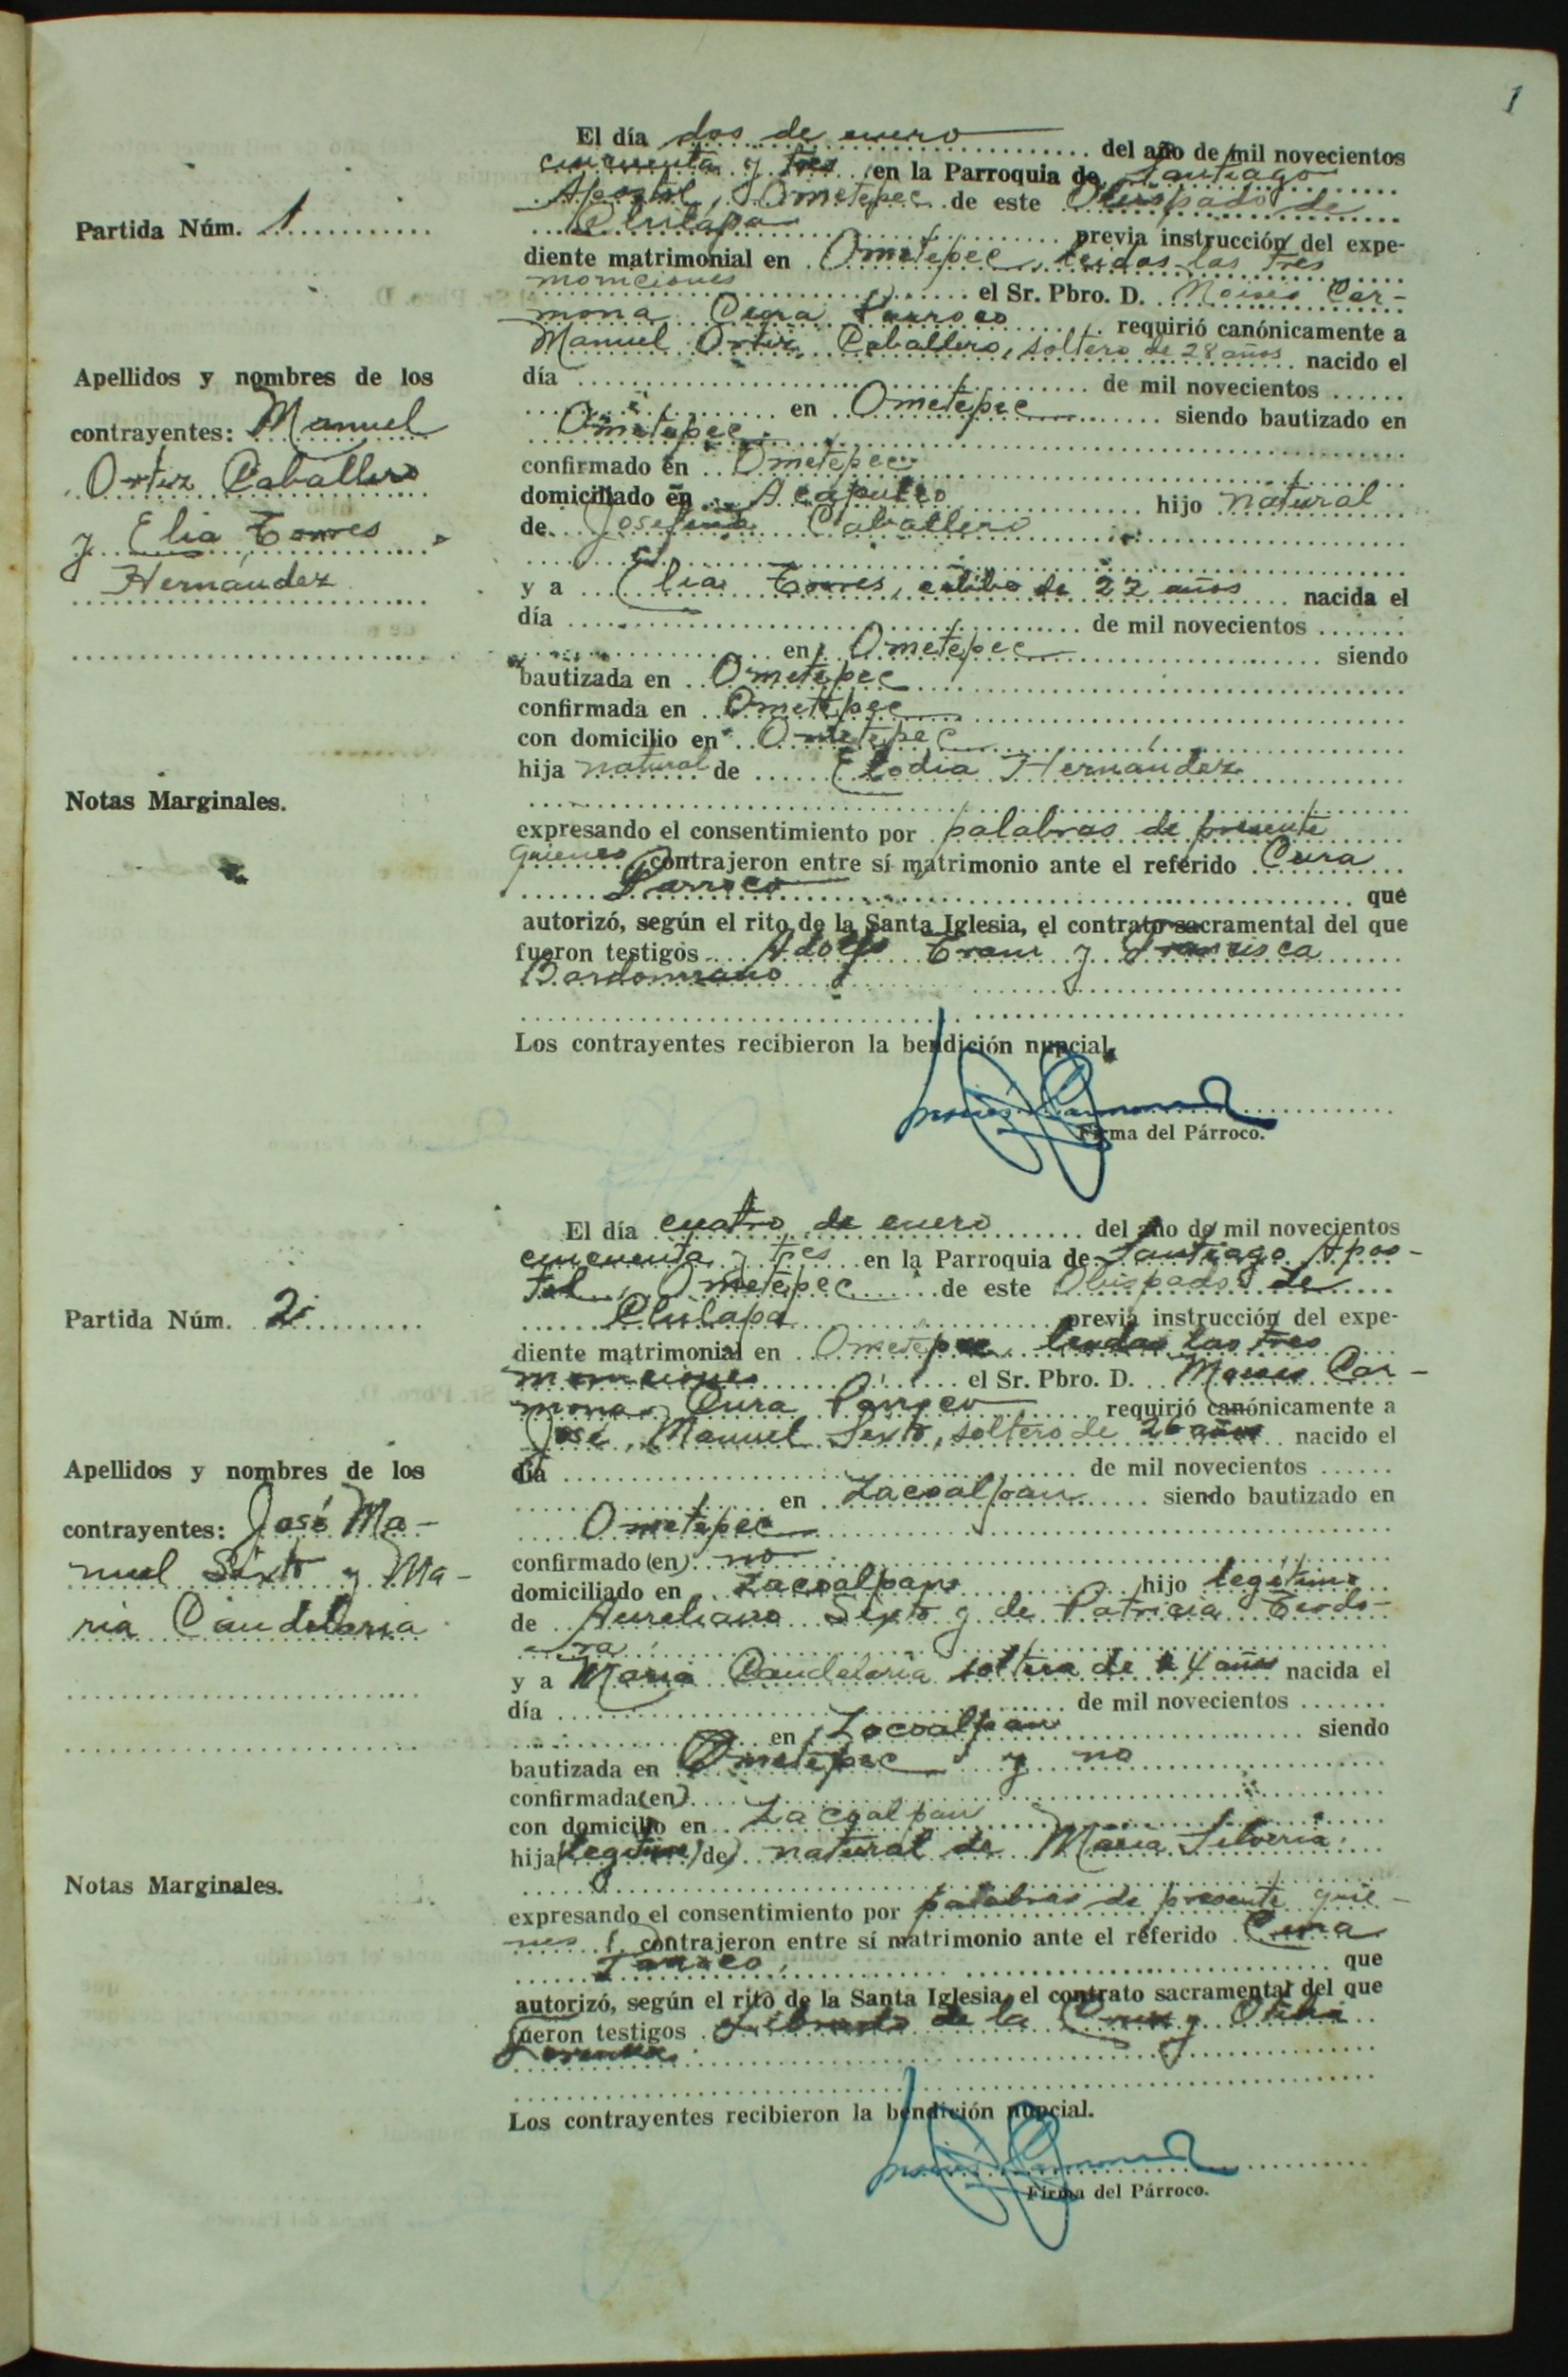 1
El día dos de enero del año de mil novecientos
cincuenta y tres en la Parroquia de Santiago
Apostol, Ometepec de este Obispado de
Chilapa previa instrucción del expe-
diente matrimonial en Ometepec, leidas las tres
moniciones el Sr. Pbro. D. Moisés Car-
mona Cura Párroco requirió canónicamente a
Manuel Ortiz Caballero, soltero de 28 años nacido el
día de mil novecientos
en Ometepec siendo bautizado en
Ometepec
confirmado en Ometepec
domiciliado en Acapulco hijo natural
de Josefina Caballero
y a Elia Torres, célibe de 22 años nacida el
día de mil novecientos
en Ometepec siendo
bautizada en Ometepec
confirmada en Ometepec
con domicilio en Ometepec
hija natural de Elodia Hernández
expresando el consentimiento por palabras de presente
quienes contrajeron entre sí matrimonio ante el referido Cura
Párroco que
autorizó, según el rito de la Santa Iglesia, el contrato sacramental del que
fueron testigos Adolfo y
Los contrayentes recibieron la bendición nupcial.
Firma del Párroco.
Partida Núm. 1
Apellidos y nombres de los
contrayentes: Manuel
Ortiz Caballero
y Elia Torres
Hernández
Notas Marginales.
El día cuatro de enero del año de mil novecientos
cincuenta y tres en la Parroquia de Santiago Apos-
tol, Ometepec de este Obispado de
Chilapa previa instrucción del expe-
diente matrimonial en Ometepec leidas las tres
moniciones el Sr. Pbro. D. Moises Car-
mona, Cura Párroco requirió canónicamente a
José Manuel Sixto, soltero de 26 años nacido el
día de mil novecientos
en Zacoalpan siendo bautizado en
Ometepec
confirmado (en) no
domiciliado en Zacoalpan hijo legítimo
de Aureliano Sixto y de Patricia Teodo-
ra
y a María Candelaria soltera de años nacida el
día de mil novecientos
en Zacoalpan siendo
bautizada en Ometepec y no
confirmada (en)
con domicilio en Zacoalpan
hija (legitima) (de) natural de María Silveria.
expresando el consentimiento por palabras de presente quie-
nes contrajeron entre sí matrimonio ante el referido Cura
Párroco, que
autorizó, según el rito de la Santa Iglesia, el contrato sacramental del que
fueron testigos Librado de la Cruz y Otilia
Los contrayentes recibieron la bendición nupcial.
Firma del Párroco.
Partida Núm. 2
Apellidos y nombres de los
contrayentes: José Ma-
nuel Sixto y Ma-
ría Candelaria
Notas Marginales.